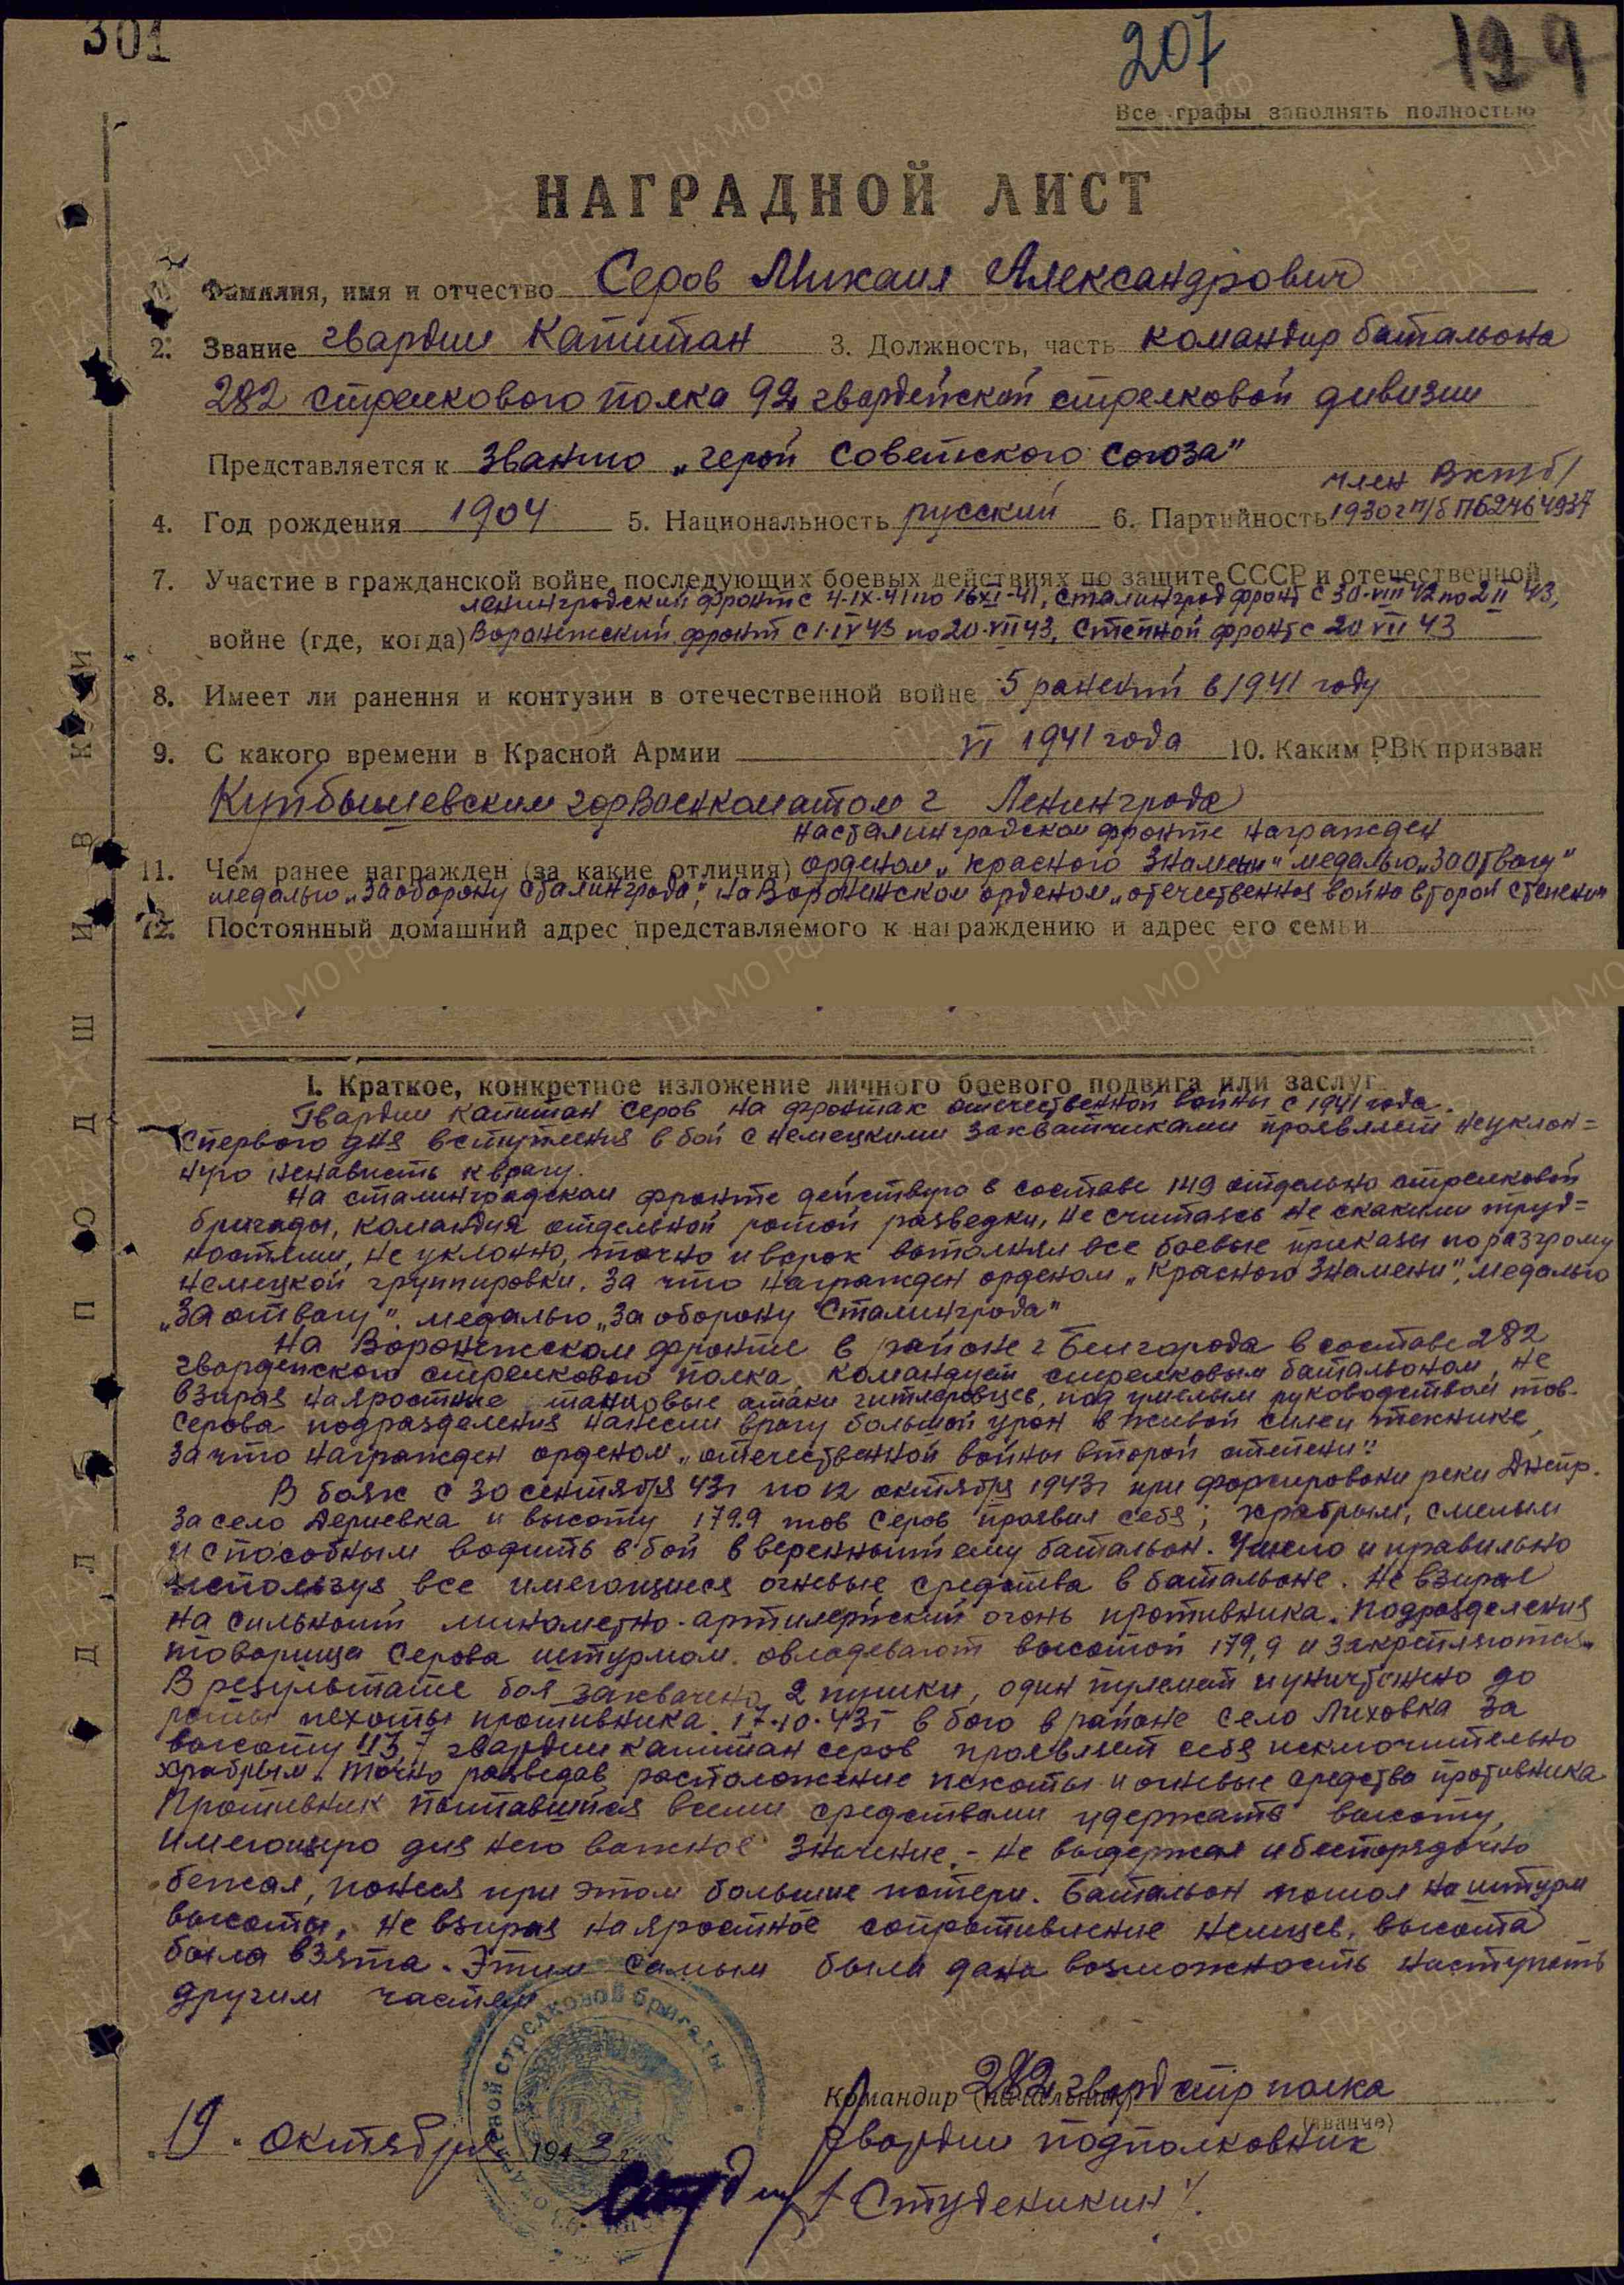 301
207
129
Все графы заполнять полностью
НАГРАДНОЙ ЛИСТ
Фамилия, имя и отчество Серов Михаил Александрович
2. Звание гвардии Капитан 3. Должность, часть командир батальона
282 стрелкового полка 92 гвардейской стрелковой дивизии
Представляется к званию „герой Советского Союза"
член ВКП/б/
4. Год рождения 1904 5. Национальность русский 6. Партийность 1930 г п/б
7. Участие в гражданской войне, последующих боевых действиях по защите СССР и отечественной
ленинградский фронт с 4-IX-41 по 16 XI-41, Сталинград фронт с 30-VIII 42 по 2 II 43,
войне (где, когда) Воронежский фронт с 1-IV 43 по 20-VII 43, Степной фронт с 20 VII 43
8. Имеет ли ранения и контузии в отечественной войне 5 ранений в 1941 году
9. С какого времени в Красной Армии VI 1941 года 10. Каким РВК призван
Куйбышевским горвоенкоматом г Ленинграда
на Сталинградском фронте награжден
11. Чем ранее награжден (за какие отличия) орденом „Красного Знамени" медалью „За Отвагу"
медалью „За оборону Сталинграда", на Воронежском орденом „отечественная война второй степени
12. Постоянный домашний адрес представляемого к награждению и адрес его семьи
I. Краткое, конкретное изложение личного боевого подвига или заслуг
Гвардии капитан Серов на фронтах отечественной войны с 1941 года.
С первого дня вступления в бой с немецкими захватчиками проявляет неуклон=
ную ненависть к врагу.
На сталинградском фронте действуя в составе 149 отдельно стрелковой
бригады, командуя отдельной ротой разведки, не считаясь не с какими труд=
ностями, не уклонно, точно и в срок выполнял все боевые приказы по разгрому
немецкой группировки. За что награжден орденом „Красного Знамени", медалью
„За отвагу", медалью „За оборону Сталинграда"
На Воронежском фронте в районе г Белгорода в составе 282
гвардейского стрелкового полка командует стрелковым батальоном, не
взирая на яростные танковые атаки гитлеровцев, под умелым руководством тов.
Серова подразделения нанесли врагу большой урон в живой силе и технике,
за что награжден орденом „отечественной войны второй степени".
В боях с 30 сентября 43г по 12 октября 1943г при форсировани реки Днепр.
За село Дериевка и высоту 179.9 тов Серов проявил себя; храбрым, смелым
и способным водить в бой вверенный ему батальон. Умело и правильно
используя все имеющиеся огневые средства в батальоне. Не взирая
на сильный минометно-артилерийский огонь противника. Подразделения
товарища Серова штурмом овладевают высотой 179,9 и закрепляются.
В результате боя захвачено 2 пушки, один пулемет и уничтожено до
роты пехоты противника. 17-10-43г в бою в районе село Лиховка за
высоту 113,7 гвардии капитан Серов проявляет себя исключительно
храбрым. Точно разведав расположение пехоты и огневые средства противника.
Противник пытавшийся всеми средствами удержать высоту,
имеющую для него важное значение, - не выдержал и беспорядочно
бежал, понеся при этом большие потери. Батальон пошол на штурм
высоты, не взирая на яростное сопротивление немцев, высота
была взята. Этим самым была дана возможность наступать
другим частям
Командир (начальник) 282 гвард стр полка
(звание)
гвардии подполковник
19 октября 1943 г.
/Студеникин/
стрелковой бригады
ДЛЯ ПОДШИВКИ